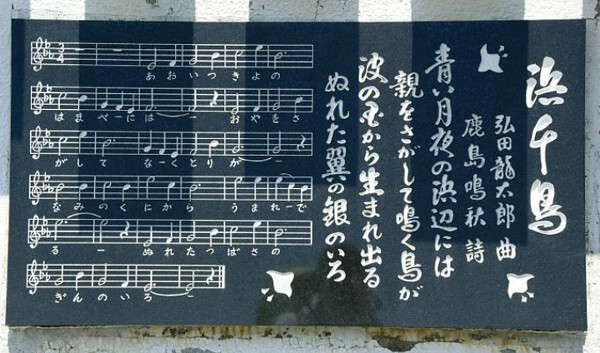 浜千鳥
弘田龍太郎 曲
鹿島鳴秋 詩
青い月夜の浜辺には
親をさがして鳴く鳥が
波の国から生まれ出る
ぬれた翼の銀のいろ
3
4
あおいつきよの
はまべーにはー おやをさ
がして なーくとりがー
なみのくにから うまれーで
るー ぬれたつばさの
ぎんのいろー